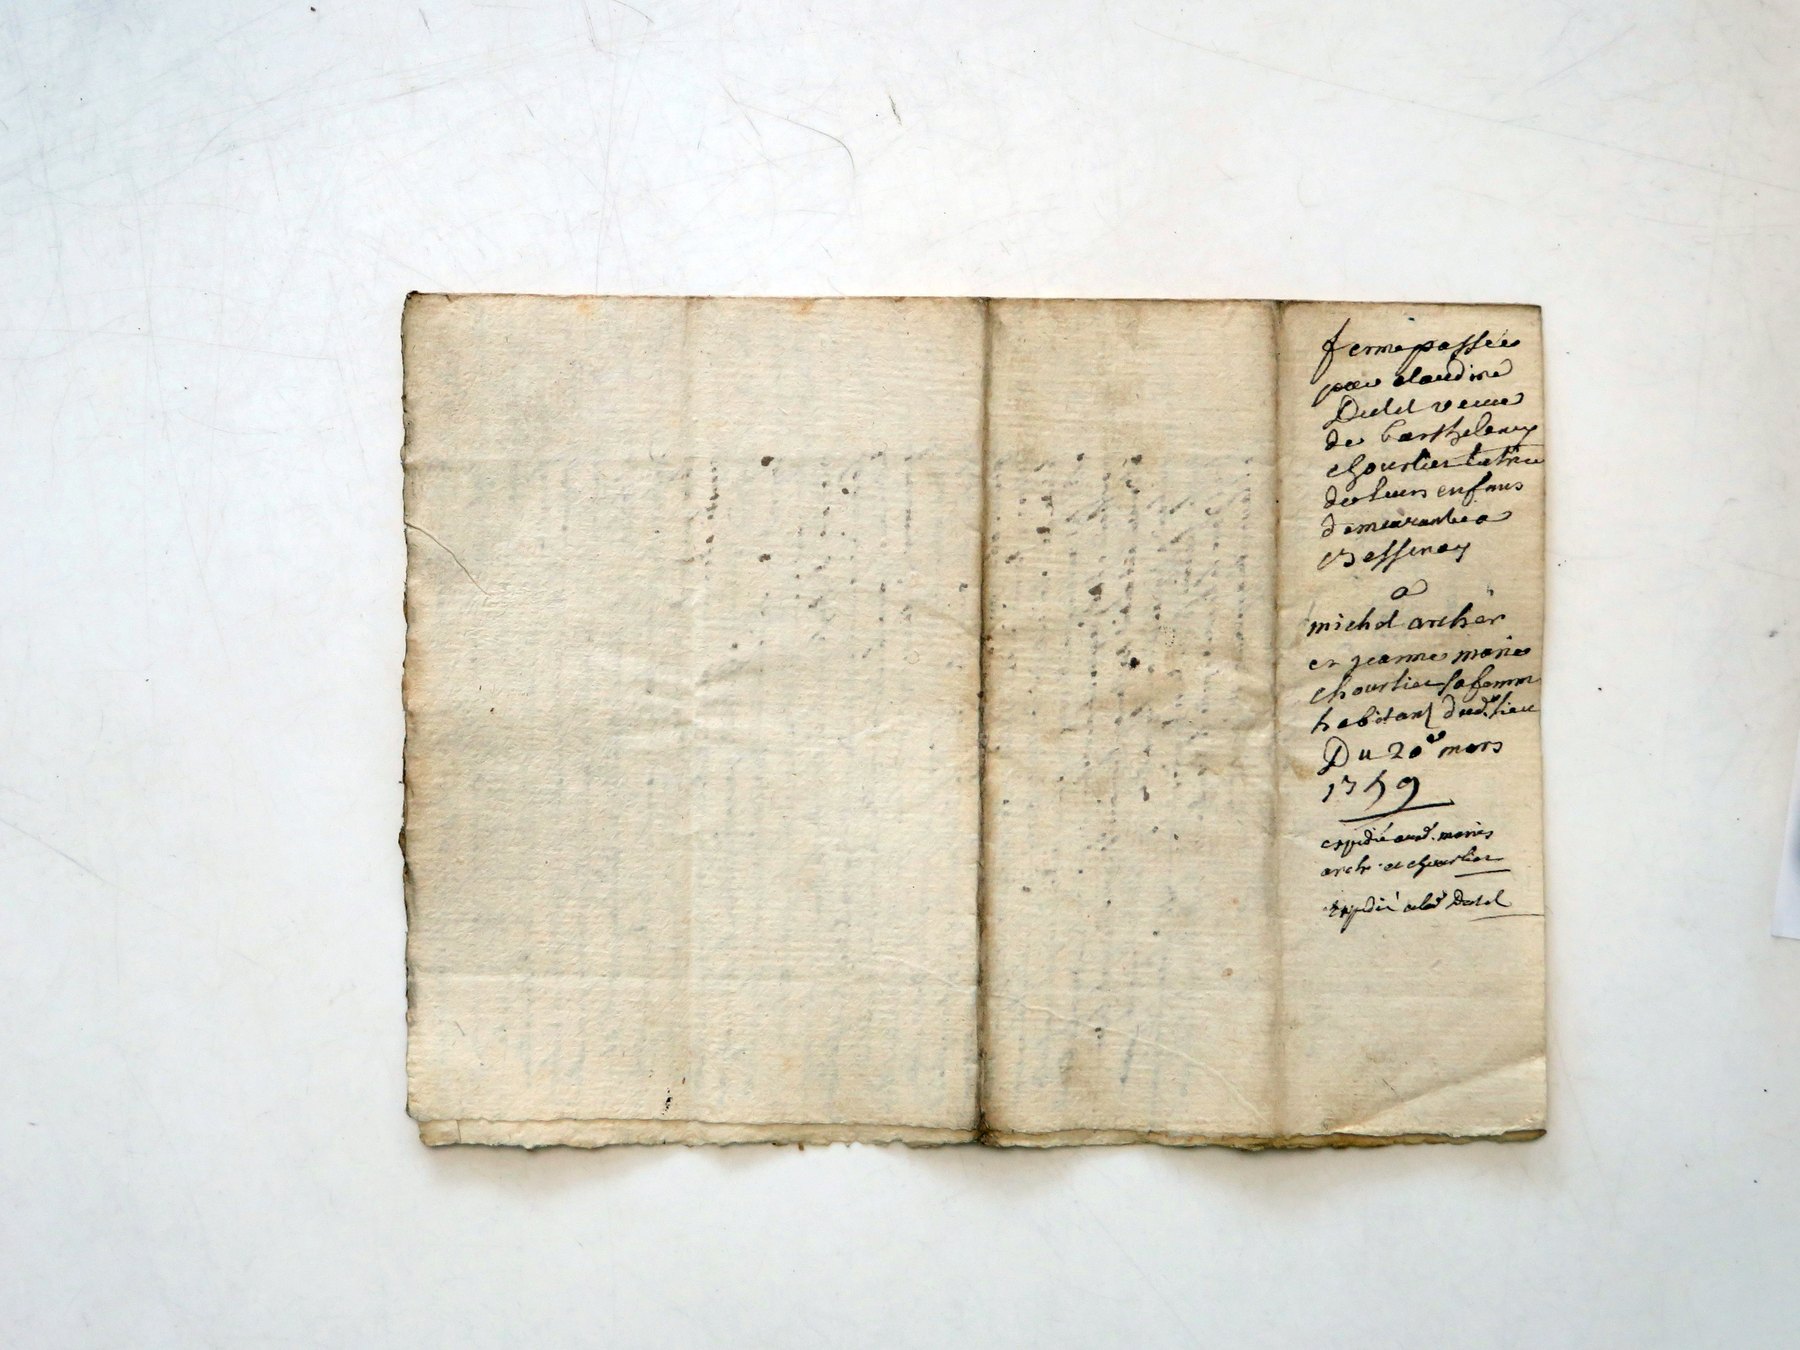 ferme passée
par claudine
Dutel veuve
de barthelemy
chourlier tutrice
de leurs enfans
demeurante a
Bessenay
a
michel archer
et jeanne marie
chourlier sa femme
habitant dud. lieu
Du 20e mars
1759
expidié aud. mariés
arch. et chourlier
expidié a lad. Dutel